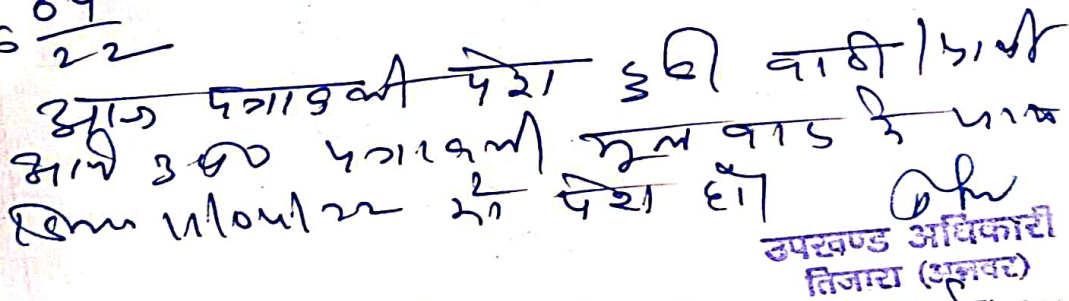 04
22
आज पत्रावली पेश हुई वादी/प्रार्थी
आये उक्त पत्रावली मूल वाद के साथ
दिनांक को पेश हों
उपखण्ड अधिकारी
तिजारा (अलवर)